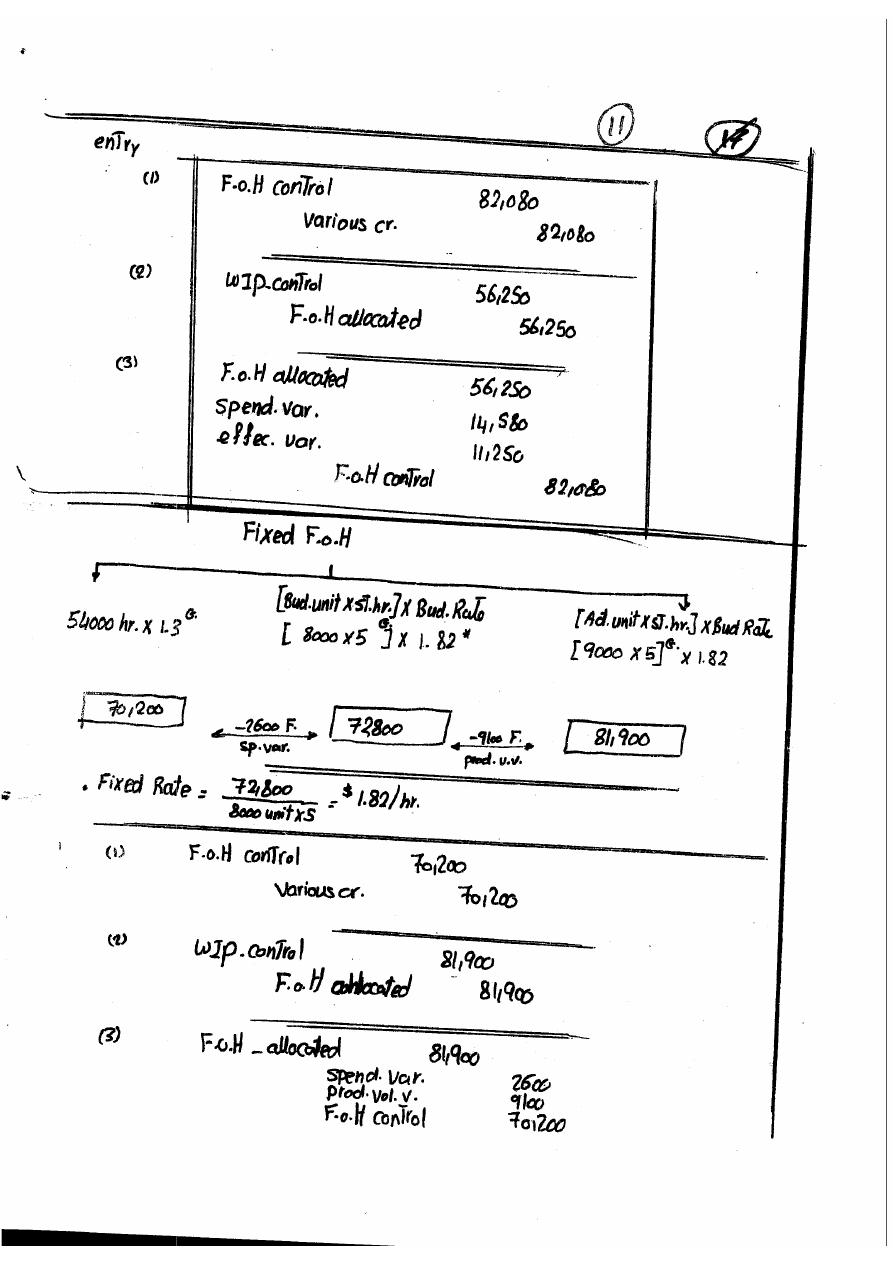 11
entry
(1) F.o.H control 82,080
Various cr. 82,080
(2) WIP-control 56,250
F.o.H allocated 56,250
(3) F.o.H allocated 56,250
Spend. var. 14,580
effec. var. 11,250
F.o.H control 82,080
Fixed F.o.H
54000 hr. X 1.3 [Bud.unit X st.hr.] X Bud. Rate [Ad.unit X st.hr.] X Bud Rate
[ 8000 X 5 ] X 1.82 * [9000 X 5] X 1.82
70,200 -2600 F. 72800 -9100 F. 81,900
sp.var. prod. v.v.
. Fixed Rate = 72,800 / 8000 unit X 5 = $ 1.82/hr.
(1) F.o.H control 70,200
Various cr. 70,200
(2) WIP-control 81,900
F.o.H allocated 81,900
(3) F.o.H - allocated 81,900
Spend. Var. 2600
Prod. Vol. v. 9100
F.o.H control 70,200